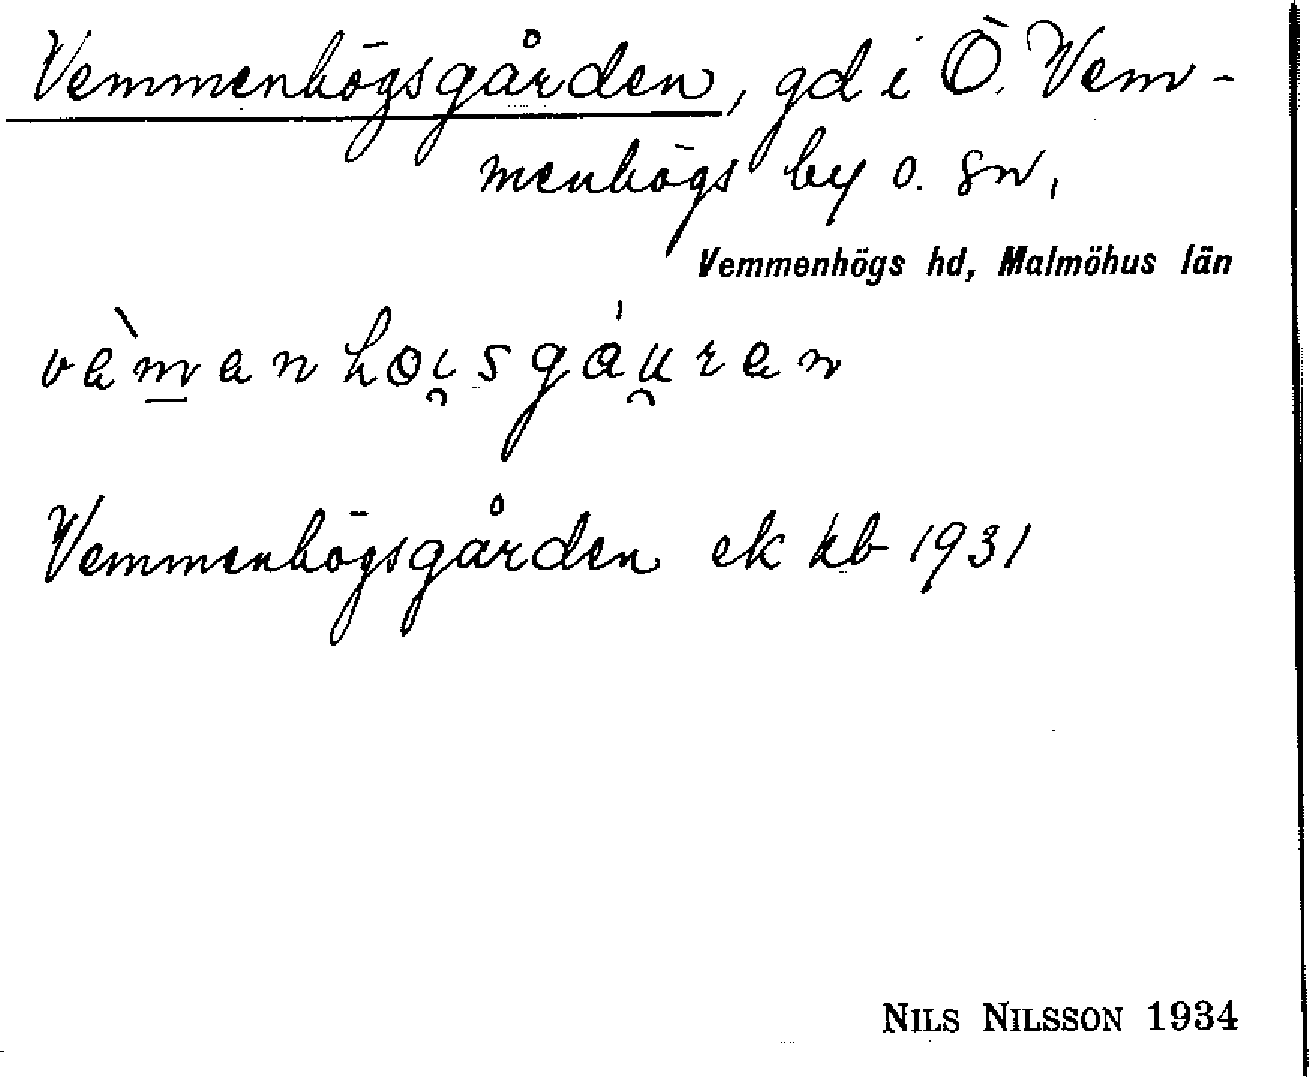 Vemmenhögsgården, gd i Ö. Vem-
menhögs by o. sn,
Vemmenhögs hd, Malmöhus län
vèm̲enhoi̯sgáu̯ren
Vemmenhögsgården ek kb 1931
NILS NILSSON 1934